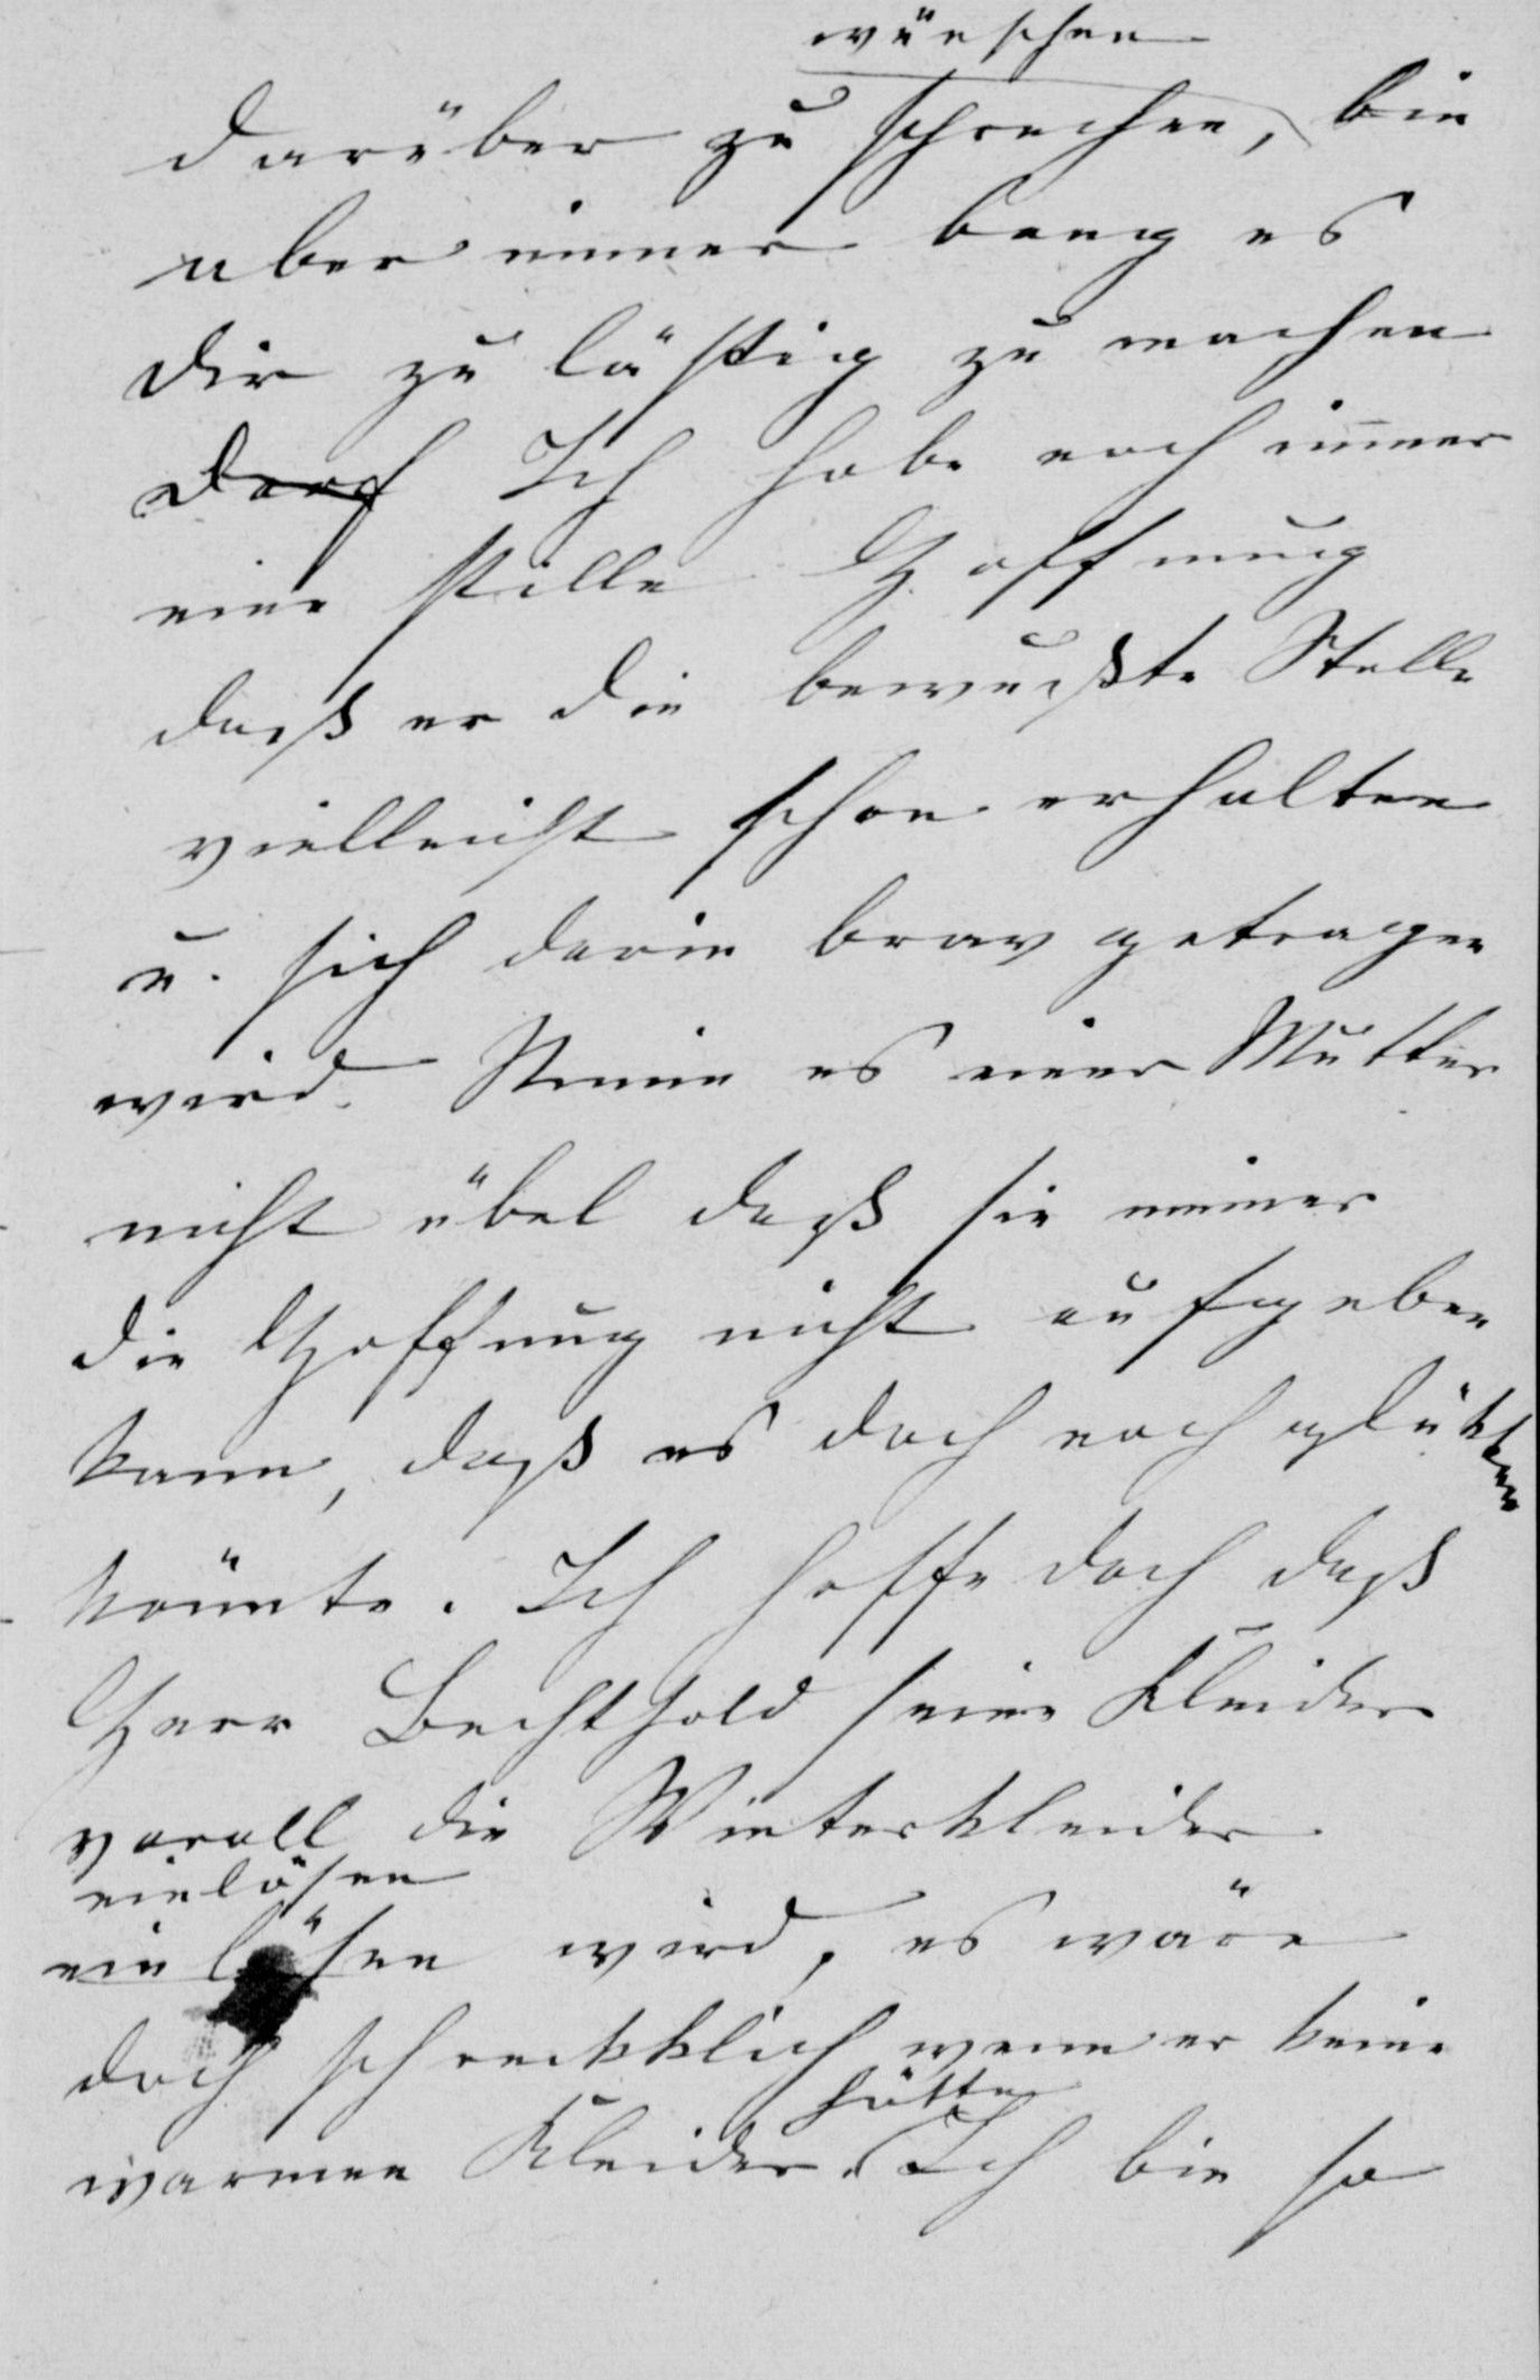 wünschen
darüber zu sprechen, bin
aber immer bang es
dir zu lästig zu machen
darf Ich habe noch immer
eine stille Hoffnung
daß er die bewußte Stelle
vielleicht schon erhalten
u. sich darin brav getragen
wird. Nimm es einer Mutter
nicht übel daß sie immer
die Hoffnung nicht aufgeben
kann, daß es doch noch glükken
könnte. Ich hoffe doch daß
Herr Bechthold seine Kleider
vorall die Winterkleider
einlösen
einlösen wird, es wäre
doch schrecklich wenn er keine
hätte
warmen Kleider. Ich bin so